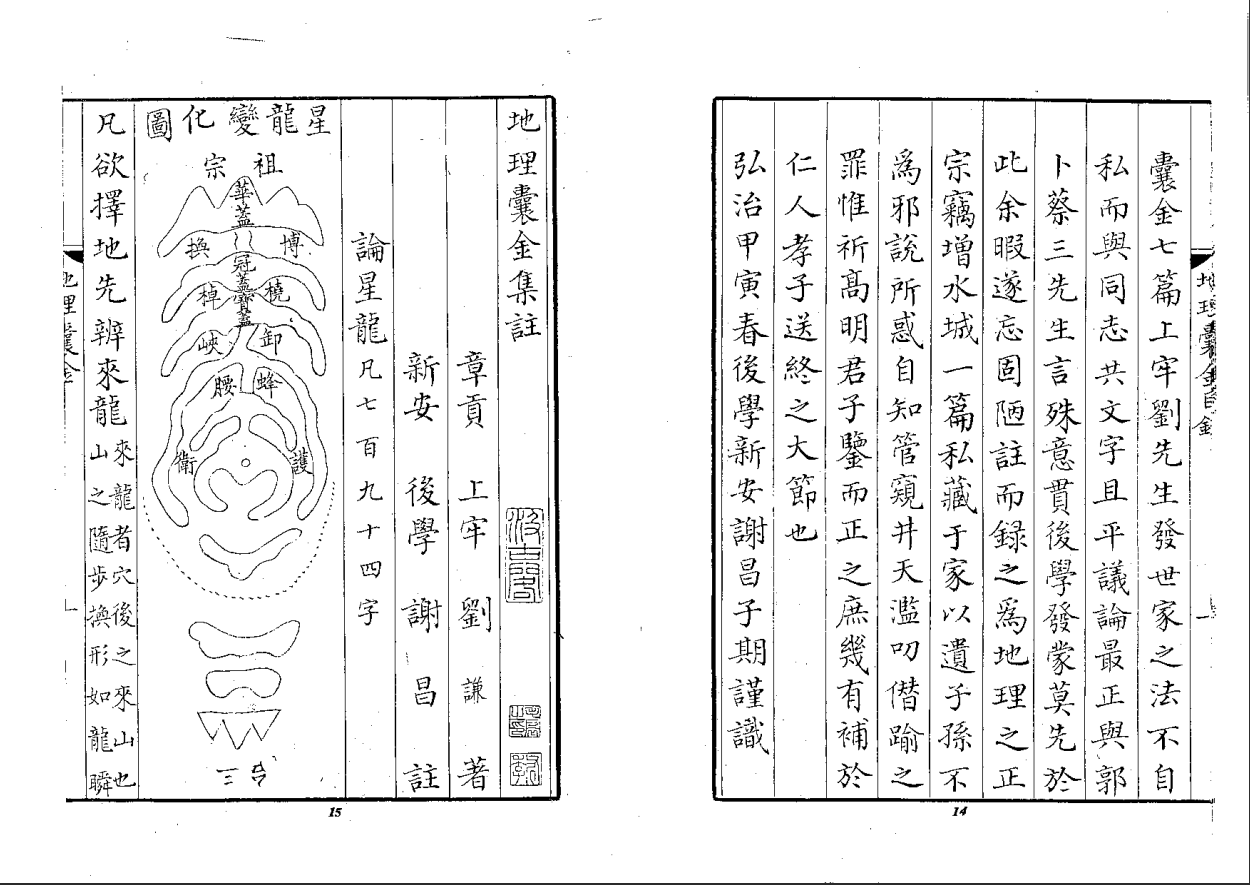 囊金七篇上牢劉先生發世家之法不自
私而與同志共文字且平議論最正與郭
卜蔡三先生言殊意貫後學發蒙莫先於
此余暇遂忘固陋註而録之爲地理之正
宗竊增水城一篇私藏于家以遺子孫不
爲邪說所惑自知管窺井天濫叨僭踰之
罪惟祈高明君子鑒而正之庶幾有補於
仁人孝子送終之大節也
弘治甲寅春後學新安謝昌子期謹識
14
地理囊金集註
章貢上牢劉謙著
新安後學謝昌註
論星龍凡七百九十四字
星龍變化圖
祖宗
華蓋
博換
冠蓋寶蓋
橈棹
卸峽
蜂腰
護衛
三台
凡欲擇地先辨來龍來龍者穴後之來山也
山之隨步換形如龍瞬
地理囊金
一
15